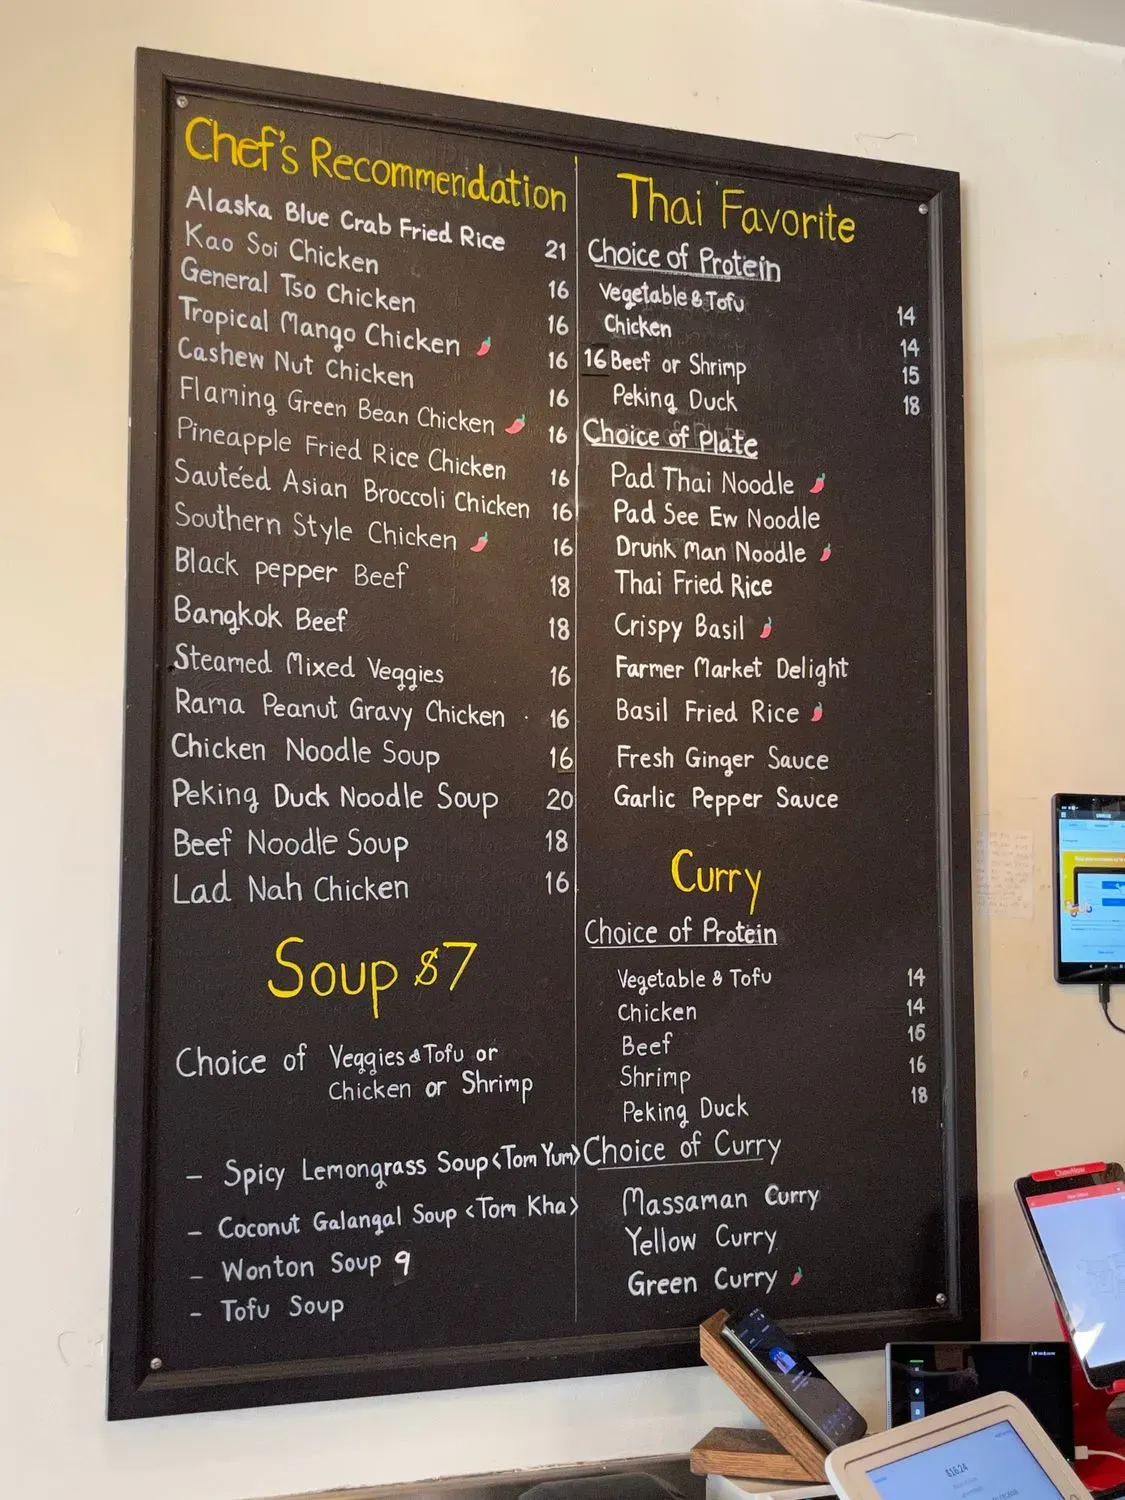 Chef's Recommendation
Alaska Blue Crab Fried Rice 21
Kao Soi Chicken 16
General Tso Chicken 16
Tropical Mango Chicken 16
Cashew Nut Chicken 16
Flaming Green Bean Chicken 16
Pineapple Fried Rice Chicken 16
Sautéed Asian Broccoli Chicken 16
Southern Style Chicken 16
Black pepper Beef 18
Bangkok Beef 18
Steamed Mixed Veggies 16
Rama Peanut Gravy Chicken 16
Chicken Noodle Soup 16
Peking Duck Noodle Soup 20
Beef Noodle Soup 18
Lad Nah Chicken 16
Soup $7
Choice of Veggies & Tofu or
Chicken or Shrimp
- Spicy Lemongrass Soup <Tom Yum>
- Coconut Galangal Soup <Tom Kha>
- Wonton Soup 9
- Tofu Soup
Thai Favorite
Choice of Protein
Vegetable & Tofu 14
Chicken 14
16 Beef or Shrimp 15
Peking Duck 18
Choice of Plate
Pad Thai Noodle
Pad See Ew Noodle
Drunk Man Noodle
Thai Fried Rice
Crispy Basil
Farmer Market Delight
Basil Fried Rice
Fresh Ginger Sauce
Garlic Pepper Sauce
Curry
Choice of Protein
Vegetable & Tofu 14
Chicken 14
Beef 16
Shrimp 16
Peking Duck 18
Choice of Curry
Massaman Curry
Yellow Curry
Green Curry
ChowNow
$16.24